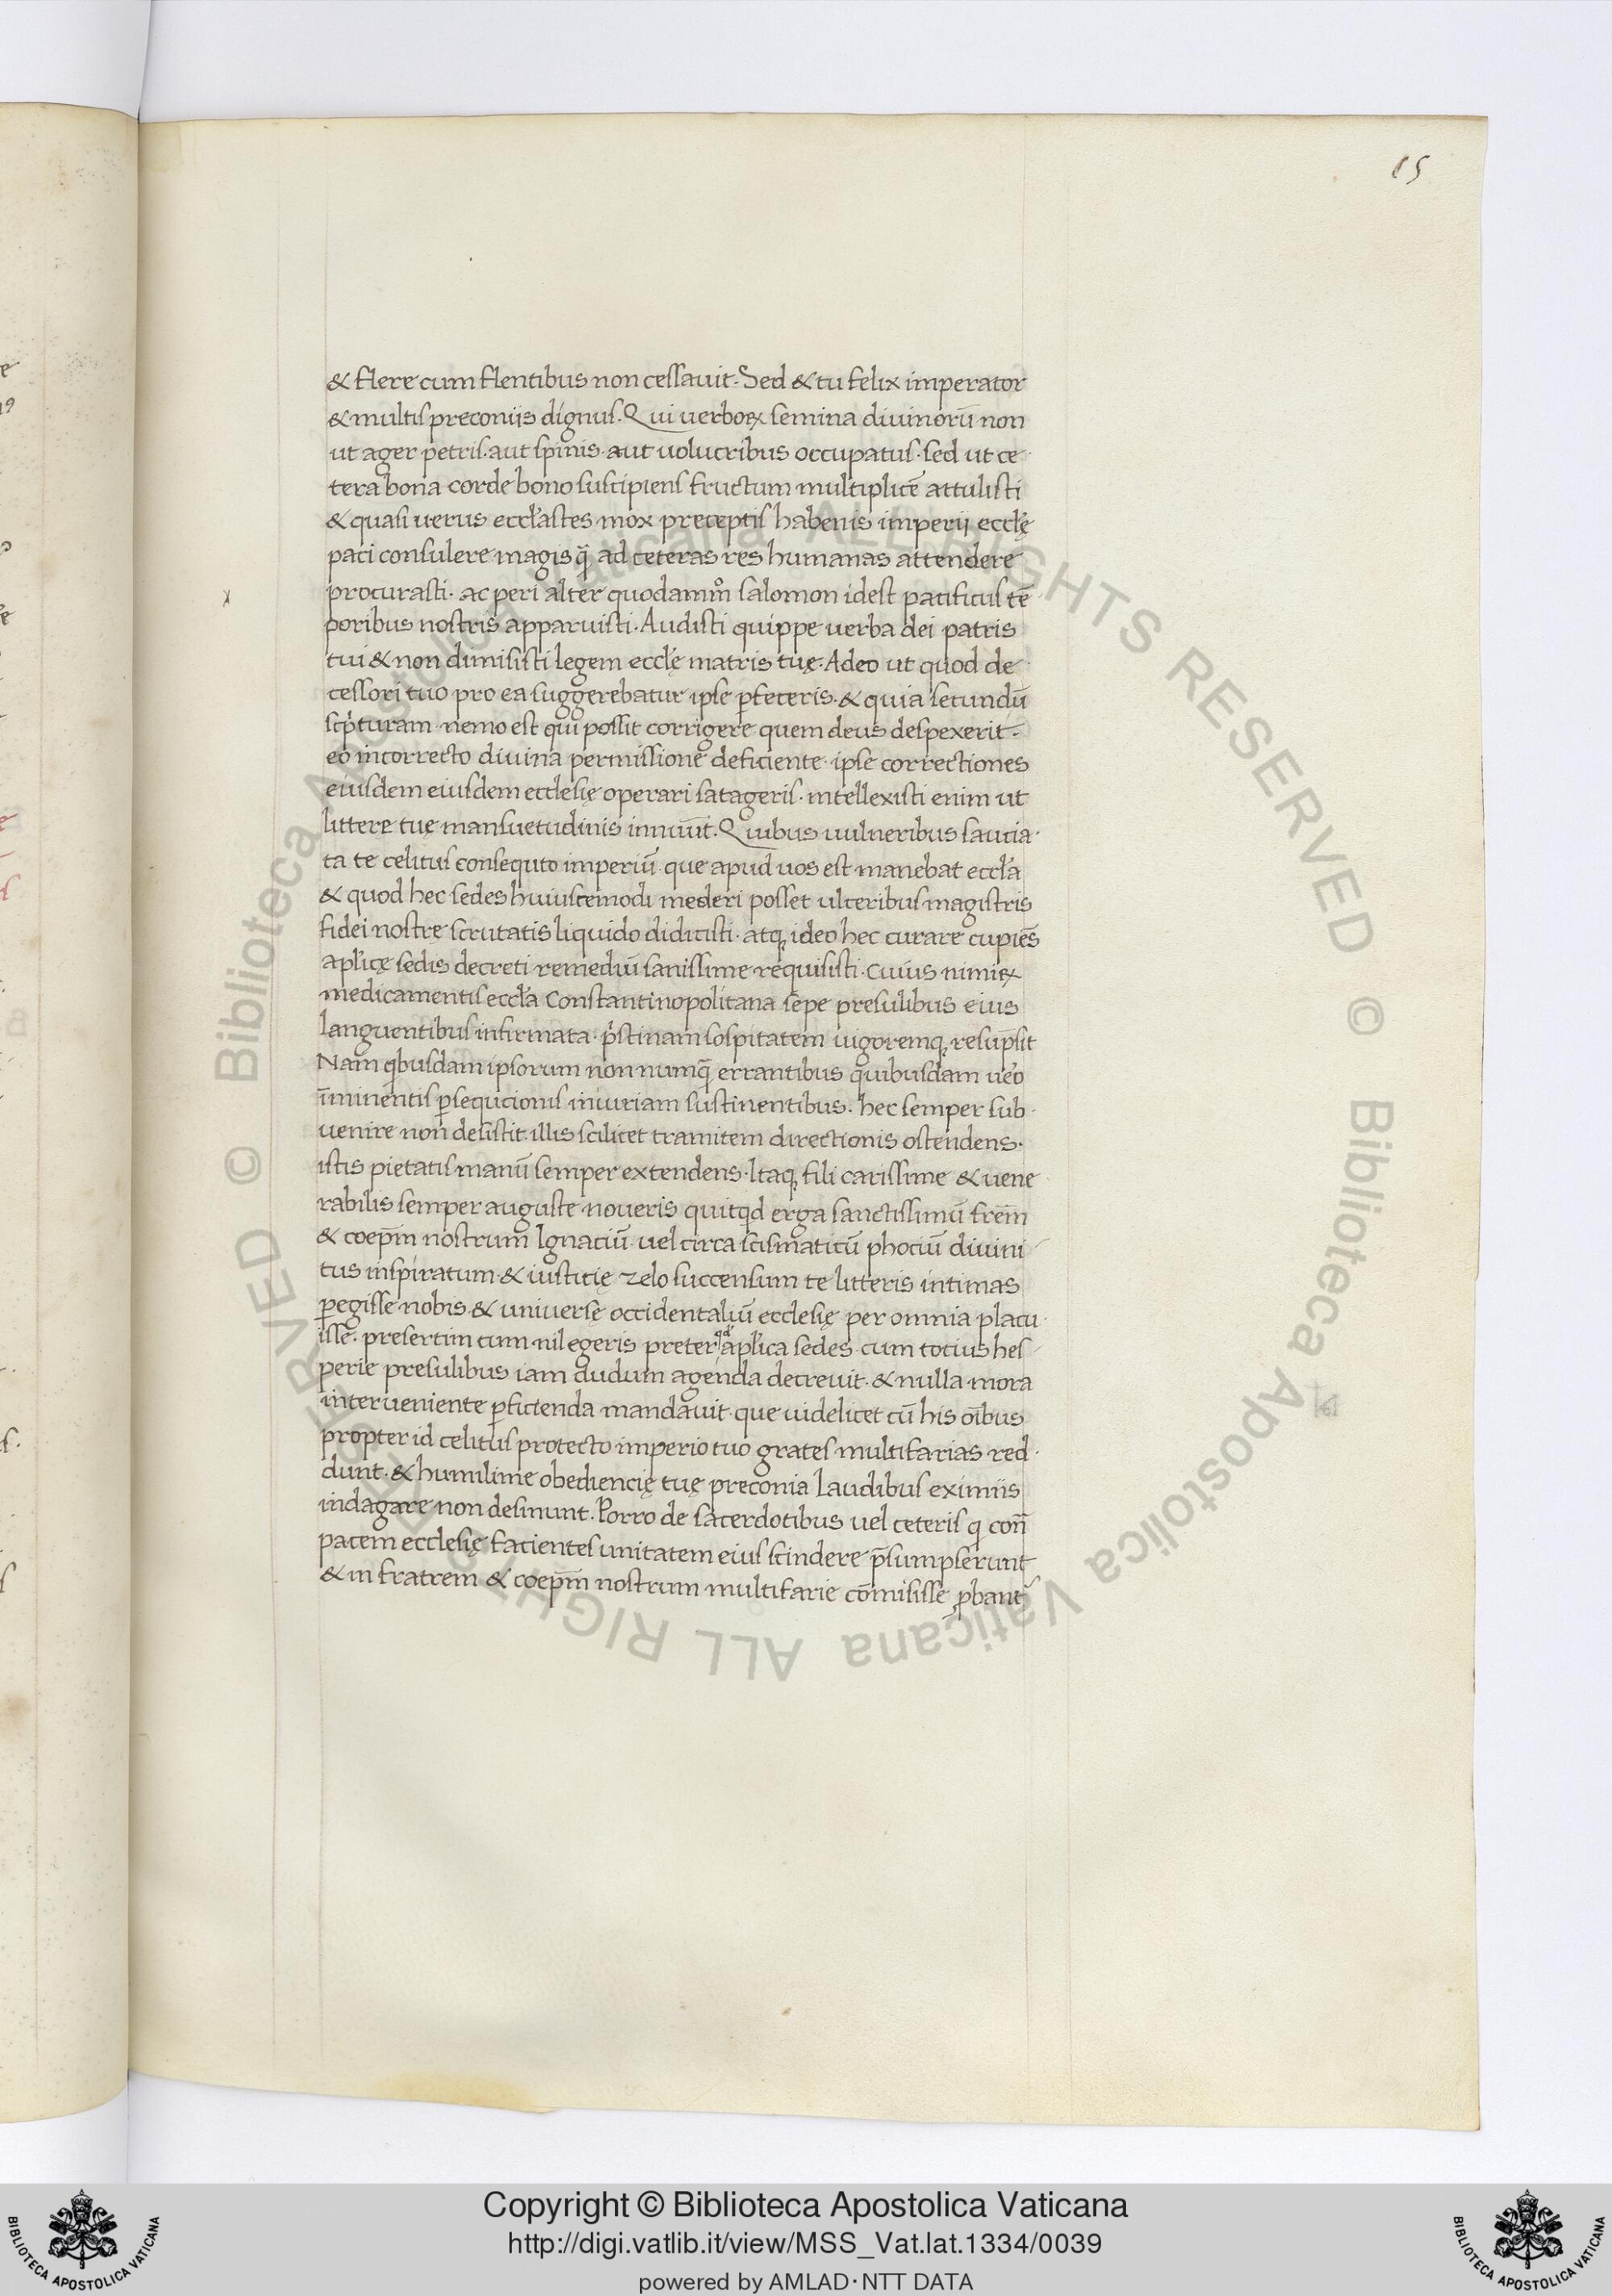 15
& flere cum flentibus non cessauit. Sed & tu felix imperator
& multis preconiis dignus. Qui uerboꝝ semina diuinorū non
ut ager petris. aut spinis. aut uolucribus occupatus. sed ut ce
tera bona corde bono suscipiens fructum multiplicē attulisti
& quasi uerus eccl̄astes mox preceptis habenis imperii eccl̄ę
paci consulere magis q̄ ad ceteras res humanas attendere
procurasti. ac peri alter quodammo salomon idest pacificus tē
poribus nostris apparuisti. Audisti quippe uerba dei patris
tui & non dimisisti legem eccl̄ę matris tuę. Adeo ut quod de
cessori tuo pro ea suggerebatur ipse ꝑfeceris. & quia secundū
scp̄turam nemo est qui possit corrigere quem deus despexerit.
eo incorrecto diuina permissione deficiente. ipse correctiones
eiusdem eiusdem ecclesię operari satageris. intellexisti enim ut
littere tuę mansuetudinis innuūt. Quibus uulneribus saucia
ta te celitus consequto imperiū que apud uos est manebat eccl̄a
& quod hec sedes huiuscemodi mederi posset ulceribus magistris
fidei nostrę scrutatis liquido didicisti. atq; ideo hec curare cupiēs
apl̄icę sedis decreti remediū sanissime requisisti. Cuius nimiꝝ
medicamentis eccl̄a Constantinopolitana sepe presulibus eius
languentibus infirmata. pͥstinam sospitatem uigoremq; resūpsit
Nam qͥbusdam ipsorum non numq̄ errantibus quibusdam ūeo
īminentis ꝑsequcionis iniuriam sustinentibus. hec semper sub
uenire non desistit. illis scilicet tramitem directionis ostendens.
istis pietatis manū semper extendens. Itaq; fili carissime & uene
rabilis semper auguste noueris quitqͥd erga sanctissimū frēm
& coep̄m nostrum Ignaciū uel circa scismaticū phociū diuini
tus inspiratum & iusticię zelo succensum te litteris intimas
ꝑegisse nobis & uniuersę occidentaliū ecclesię per omnia placu
isse. presertim cum nil egeris preter qd̄ apl̄ica sedes cum totius hes
perie presulibus iam dudum agenda decreuit. & nulla mora
interueniente ꝑficienda mandauit. que uidelicet cū his oībus
propter id celitus protecto imperio tuo grates multifarias red
dunt. & humilime obediencię tuę preconia laudibus eximiis
indagare non desinunt. Porro de sacerdotibus uel ceteris qͥ con̄
pacem ecclesię facientes unitatem eius scindere p̄sumpserunt
& in fratrem & coep̄m nostrum multifarie cōmisisse ꝓbant᷑
© Biblioteca Apostolica Vaticana ALL RIGHTS RESERVED © Biblioteca Apostolica Vaticana ALL RIGHTS RESERVED
BIBLIOTECA APOSTOLICA VATICANA
Copyright © Biblioteca Apostolica Vaticana
http://digi.vatlib.it/view/MSS_Vat.lat.1334/0039
powered by AMLAD·NTT DATA
BIBLIOTECA APOSTOLICA VATICANA